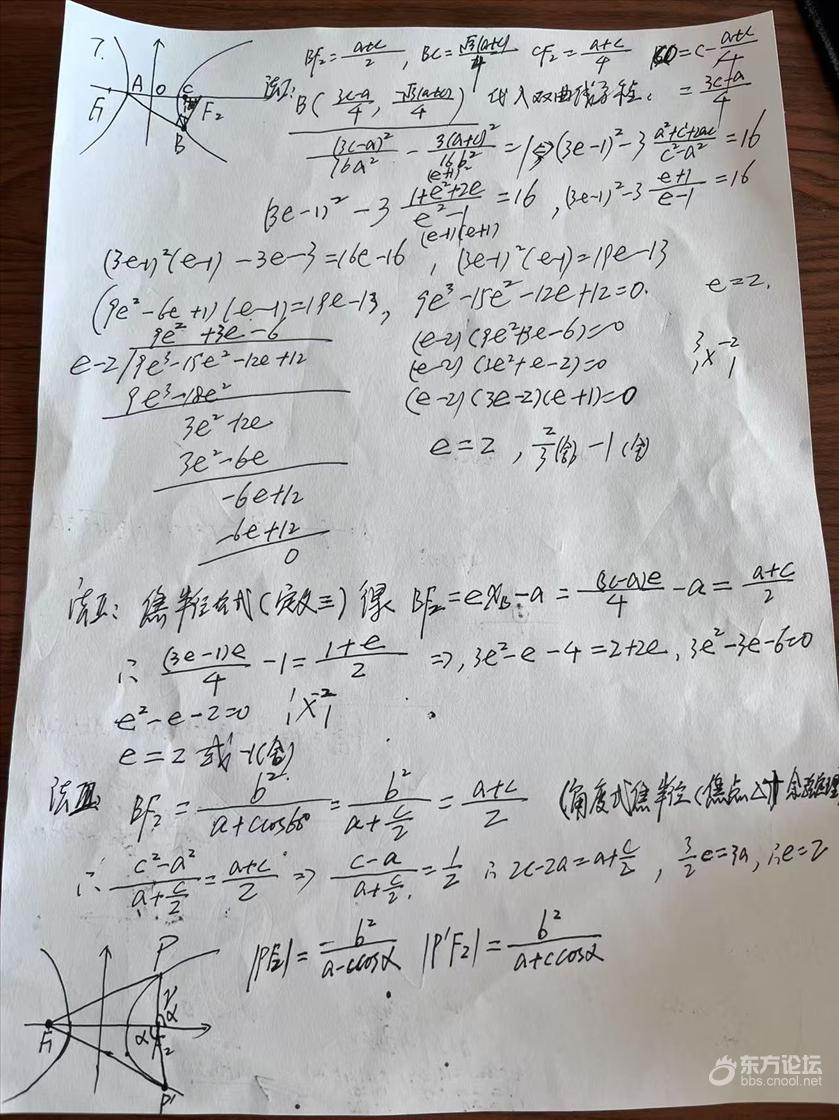 7.
BF₂=(a+c)/2, BC=√3(a+c)/4 CF₂=(a+c)/4 =c-(a+c)/4
A O C F₁ F₂ B
法I: B((3c-a)/4, -√3(a+c)/4) 代入双曲线方程: =(3c-a)/4
(3c-a)²/16a² - 3(a+c)²/16b² =1 ⇒(3e-1)²-3(a²+c²+2ac)/(c²-a²)=16
(e+1)²
(3e-1)²-3(1+e²+2e)/(e²-1)=16, (3e-1)²-3(e+1)/(e-1)=16
(e-1)(e+1)
(3e-1)²(e-1)-3e-3=16e-16, (3e-1)²(e-1)=19e-13
(9e²-6e+1)(e-1)=19e-13, 9e³-15e²-12e+12=0. e=2.
9e²+3e-6 (e-2)(9e²+3e-6)=0
e-2√9e³-15e²-12e+12 (e-2)(3e²+e-2)=0 3 -2
9e³-18e² (e-2)(3e-2)(e+1)=0 1 × 1
3e²-12e
3e²-6e e=2, 2/3(舍) -1(舍)
-6e+12
-6e+12
0
法II: 焦半径公式(定义三)得 BF₂=ex_B-a=(3c-a)e/4-a=(a+c)/2
∴ (3e-1)e/4-1=(1+e)/2 ⇒, 3e²-e-4=2+2e, 3e²-3e-6=0
e²-e-2=0 1 × -2 1
e=2 或 -1(舍)
法III: BF₂=b²/(a+ccos60°)=b²/(a+c/2)=(a+c)/2 (角度式焦半径(焦点△中余弦定理
∴ (c²-a²)/(a+c/2)=(a+c)/2 ⇒ (c-a)/(a+c/2)=1/2 ∴2c-2a=a+c/2, 3/2 e=3a, ∴e=2
|PF₂|=b²/(a-ccosα) |P'F₂|=b²/(a+ccosα)
P
α
F₁ α F₂
P'
东方论坛
bbs.cnool.net